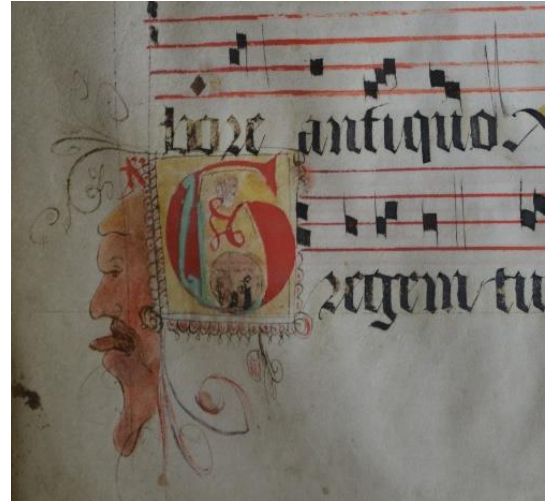 bore antiquo.
Gregem tu